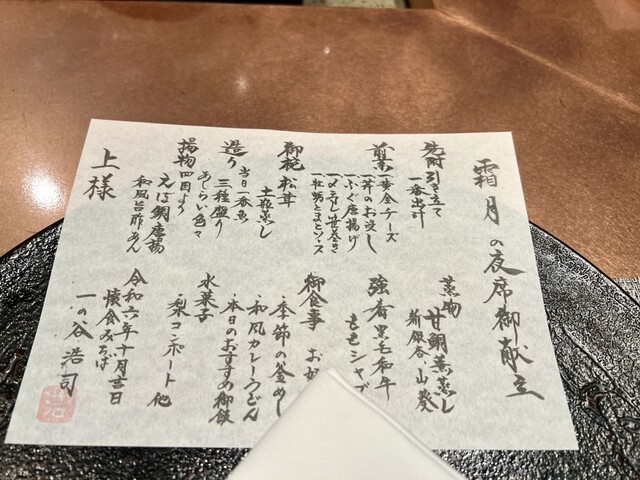 霜月の夜席御献立
先附 引き立て
一番出汁
前菜
一黄金チーズ
一丼のお浸し
一ふぐ唐揚げ
一牡蛎とまとソース
御椀 松茸
土瓶蒸し
造り 当日一番魚
三種盛り
あしらい色々
揚物 四国より
えぼ鯛唐揚
和風旨酢あん
蒸物 甘鯛蕪蒸し
新銀杏 山葵
強肴 黒毛和牛
ももシャブ
御食事
・季節の釜めし
・和風カレーうどん
・本日のおすすめ御飯
水菓子
・梨コンポート 他
令和六年十一月吉日
懐食みちば
一の谷浩司
上様